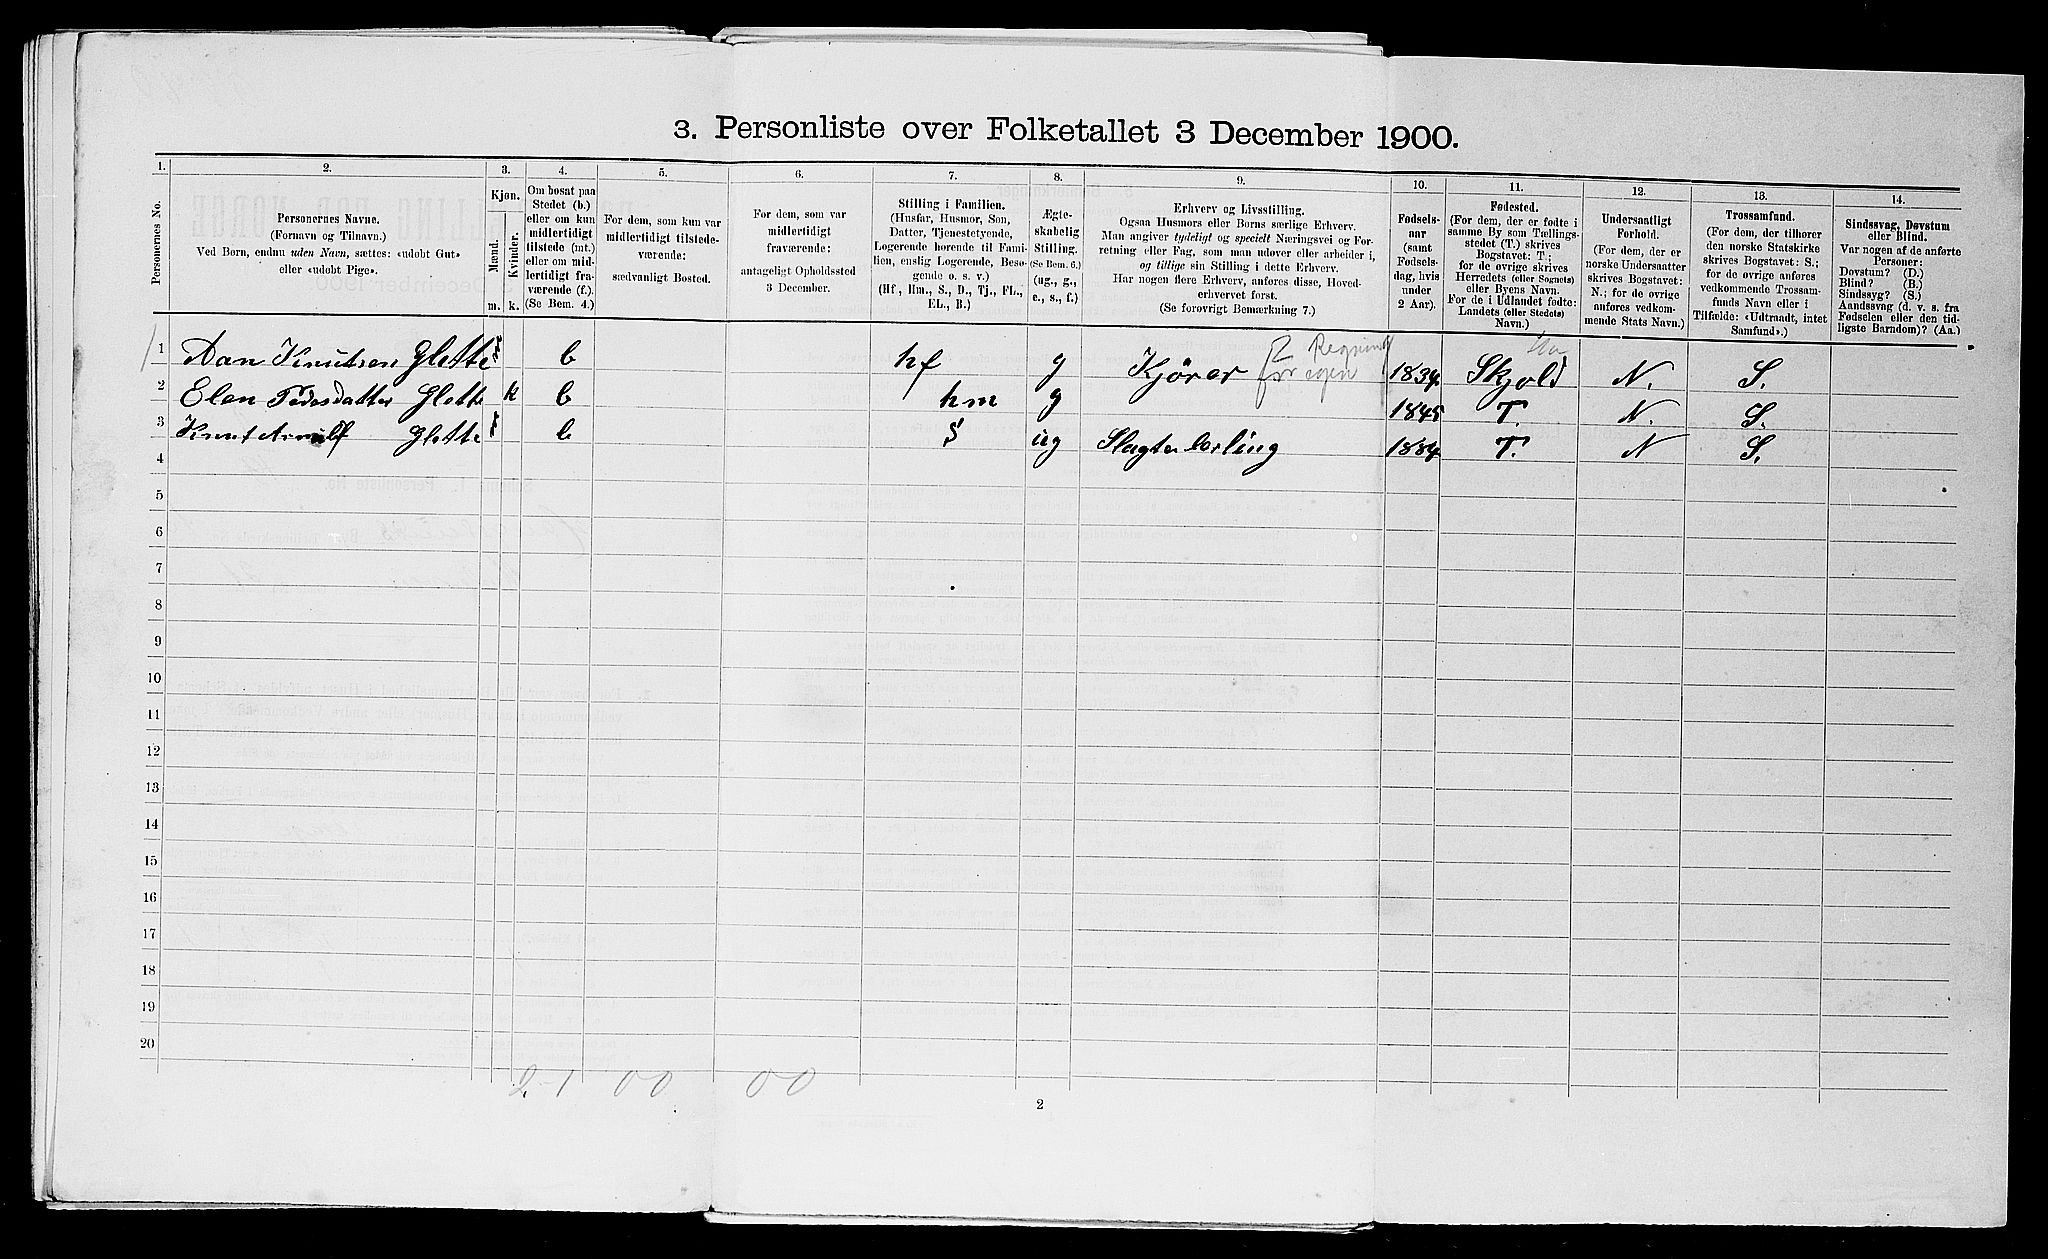 3. Personliste over Folketallet 3 December 1900.
1. 2. 3. 4. 5. 6. 7. 8. 9. 10. 11. 12. 13. 14.
Personernes No.
Personernes Navne.
(Fornavn og Tilnavn.)
Ved Børn, endnu uden Navn, sættes: «udobt Gut»
eller «udobt Pige».
Kjøn.
Mænd.
Kvinder.
m. k.
Om bosat paa
Stedet (b.)
eller om kun
midlertidigt
tilstede (mt.)
eller om mid-
lertidigt fra-
værende (f.).
(Se Bem. 4.)
For dem, som kun var
midlertidigt tilstede-
værende:
sædvanligt Bosted.
For dem, som var
midlertidigt
fraværende:
antageligt Opholdssted
3 December.
Stilling i Familien.
(Husfar, Husmor, Søn,
Datter, Tjenestetyende,
Logerende hørende til Fami-
lien, enslig Logerende, Besø-
gende o. s. v.)
(Hf., Hm., S., D., Tj., FL.,
EL., B.)
Ægte-
skabelig
Stilling.
(Se Bem. 6.)
(ug., g.,
e., s., f.)
Erhverv og Livsstilling.
Ogsaa Husmors eller Børns særlige Erhverv.
Man angiver tydeligt og specielt Næringsvei og For-
retning eller Fag, som man udøver eller arbeider i,
og tillige sin Stilling i dette Erhverv.
Har nogen flere Erhverv, anføres disse, Hoved-
erhvervet først.
(Se forøvrigt Bemærkning 7.)
Fødsels-
aar
(samt
Fødsels-
dag, hvis
under
2 Aar).
Fødested.
(For dem, der er fødte i
samme By som Tællings-
stedet (T.) skrives
Bogstavet: T.;
for de øvrige skrives
Herredets (eller Sognets)
eller Byens Navn.
For de i Udlandet fødte:
Landets (eller Stedets)
Navn.)
Undersaatligt
Forhold.
(For dem, der er
norske Undersaatter
skrives Bogstavet:
N.; for de øvrige
anføres vedkom-
mende Stats Navn.)
Trossamfund.
(For dem, der tilhører
den norske Statskirke
skrives Bogstavet: S.;
for de øvrige anføres
vedkommende Trossam-
funds Navn eller i
Tilfælde: «Udtraadt, intet
Samfund».)
Sindssvag, Døvstum
eller Blind.
Var nogen af de anførte
Personer:
Døvstum? (D.)
Blind? (B.)
Sindssyg? (S.)
Aandssvag (d. v. s. fra
Fødselen eller den tid-
ligste Barndom)? (Aa.)
1 Aan Knutsen Glette b hf g Kjører for egen Regning 1834 Skjold N. S.
2 Elen Glette k b hm g 1845 T. N. S.
3 Knut Glette b S ug Slagterlærling 1884 T. N S.
4
5
6
7
8
9
10
11
12
13
14
15
16
17
18
19
20
2-1 00 00
2